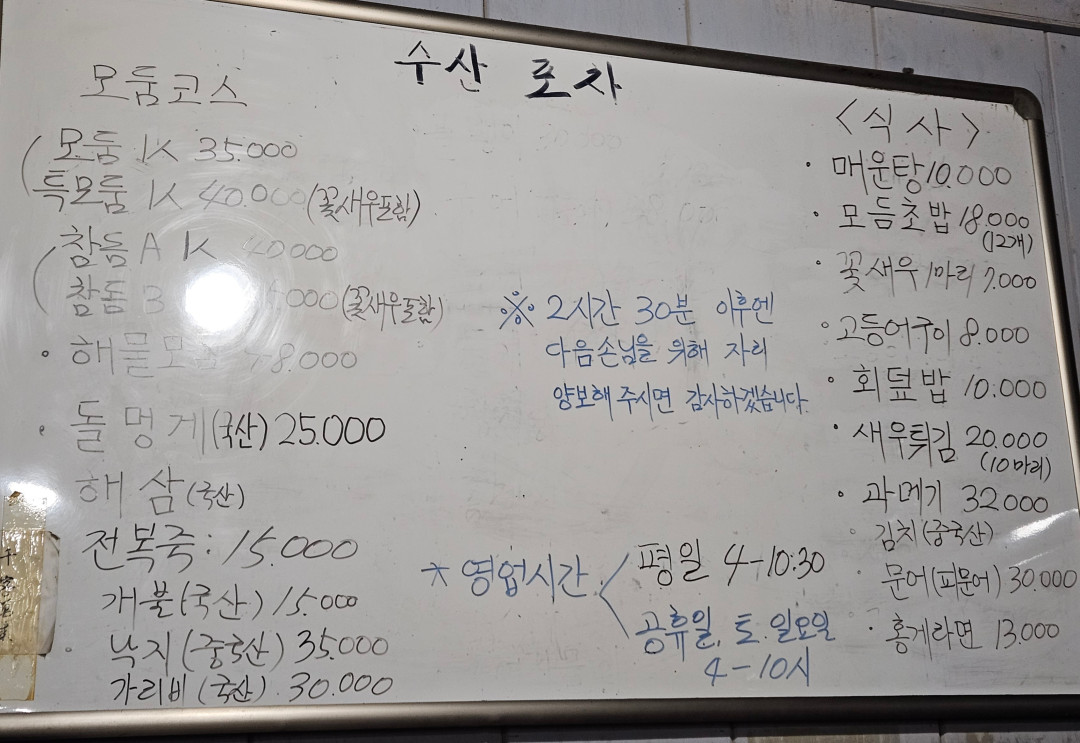 수산 포차
모둠코스
모둠 1K 35.000
특모둠 1K 40.000 (꽃새우포함)
참돔 A K 40000
참돔 B 000 (꽃새우포함)
· 해물모둠 78.000
· 돌멍게(국산) 25.000
해삼(국산)
전복죽: 15.000
개불(국산) 15.000
· 낙지(중국산) 35.000
가리비(국산). 30.000
※ 2시간 30분 이후엔
다음손님을 위해 자리
양보해 주시면 감사하겠습니다.
* 영업시간 < 평일 4-10:30
공휴일, 토.일요일
4-10시
<식사>
· 매운탕 10.000
· 모듬초밥 18.000
(12개)
· 꽃새우 1마리 7.000
· 고등어구이 8.000
· 회덮밥 10.000
· 새우튀김 20.000
(10마리)
· 과메기 32000
· 김치(중국산)
· 문어(피문어) 30.000
· 홍게라면 13.000